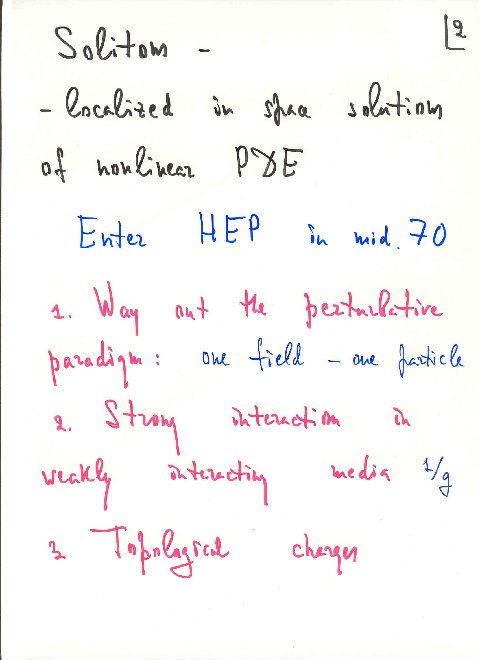 2
Solitons -
- localized in space solutions
of nonlinear PDE
Enter HEP in mid. 70
1. Way out the perturbative
paradigm: one field - one particle
2. Strong interaction in
weakly interacting media 1/g
3 Topological charges